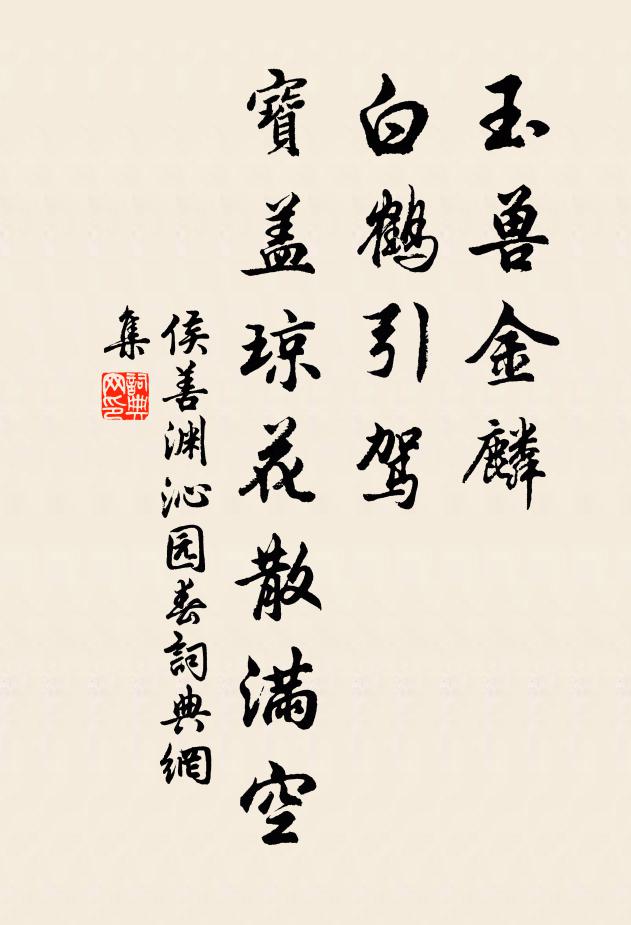 玉兽金麟
白鹤引驾
寶盖琼花散满空
侯善渊沁园春詞典網
集
詞典
网印